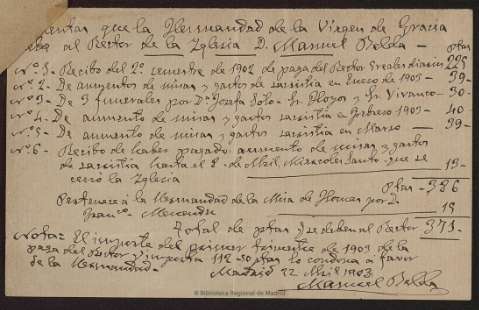 Cuentas que la Hermandad de la Virgen de Gracia
al Rector de la Iglesia D. Manuel Belda — ptas
Nº 1 - Recibo del 2º semestre de 1902 de paga del Rector 5 reales diarios 225
Nº 2 - De aumentos de misas y gastos de sacristia en Enero de 1903 — 39 —
Nº 3 - De 3 funerales por Dª Josefa Soto - Sr. Hoyos y Sr. Vivanco — 30 —
Nº 4 - De aumento de misas y gastos sacristia en Febrero 1903 — 40
Nº 5 - De aumento de misas y gastos sacristia en Marzo — 39 —
Nº 6 - Recibo de haber pagado aumento de misas y gastos
de sacristia hasta el 8 de Abril Miercoles Santo que se
cerró la Iglesia — 13 —
Ptas — 386
Pertenece á la Hermandad de la Misa de Honras por D.
Franco Menendez — 15
Total de ptas que se deben al Rector 371 —
Nota = El importe del primer trimestre de 1903 de la
paga del Rector que importa 112-50 ptas lo condona á favor
de la Hermandad.
Madrid 22 Abril 1903
Manuel Belda
© Biblioteca Regional de Madrid